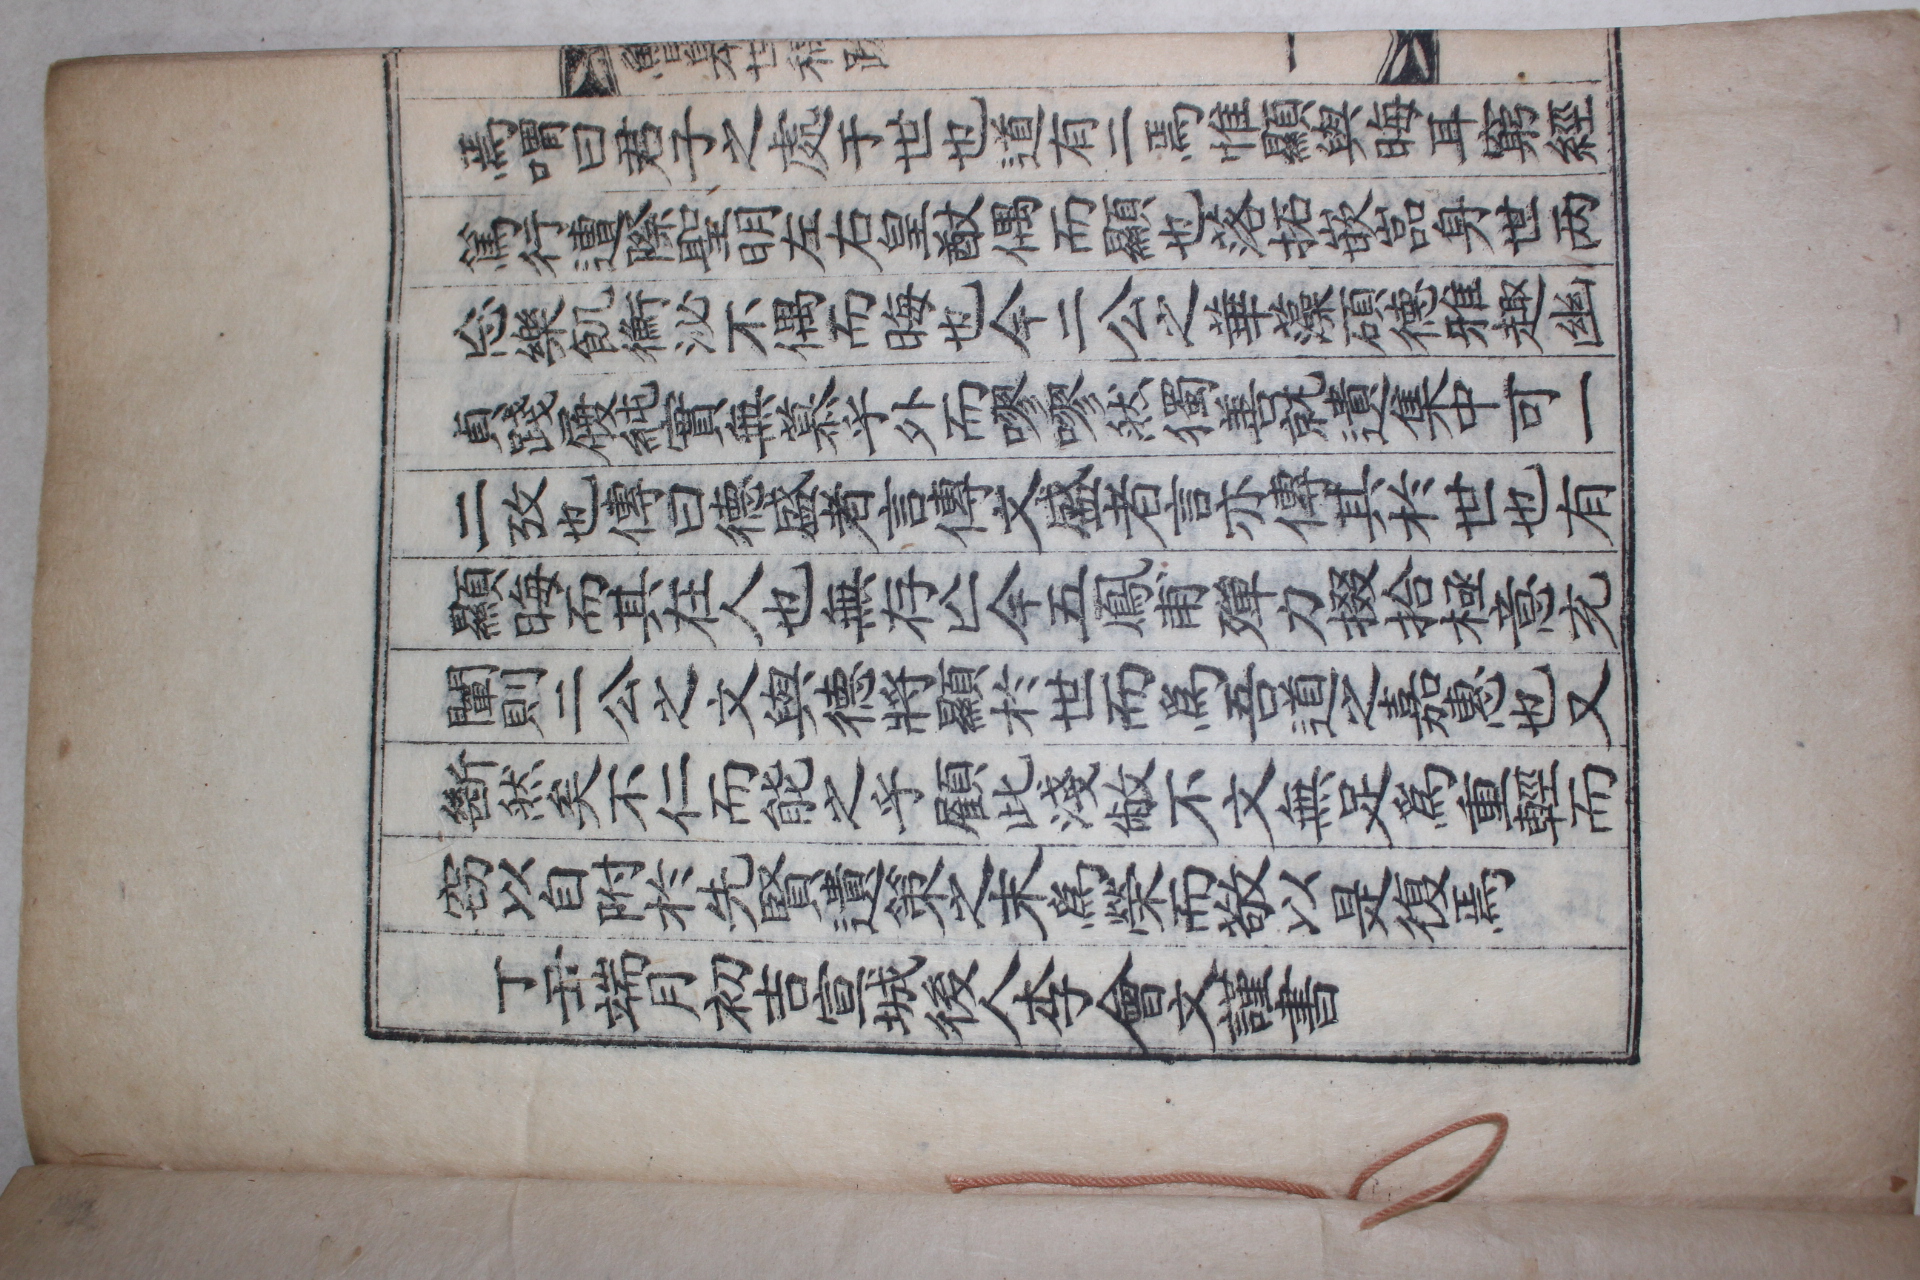 焉喟曰君子之處于世也道有二焉惟顯與晦耳窮經
篤行遭際聖明左右皇猷偶而顯也落拓身世兩
忘樂飢衡泌不偶而晦也今二公之華藻碩德雅趣幽
貞踐履純實無慕乎外而嘐嘐然獨善就遺集中可一
二攷也傳曰德盛者言傳文盛者言亦傳其於世也有
顯晦而其在人也無存亡今五鳳甫殫力掇拾極意克
闡則二公之文與德將顯於世而爲吾道之嘉惠也又
斷然矣不仁而能之乎顧此淺不文無足爲重輕而
窃以自附於先賢遺集之末爲榮而敬以是復焉
丁丑端月初吉宣城後人李會文謹書